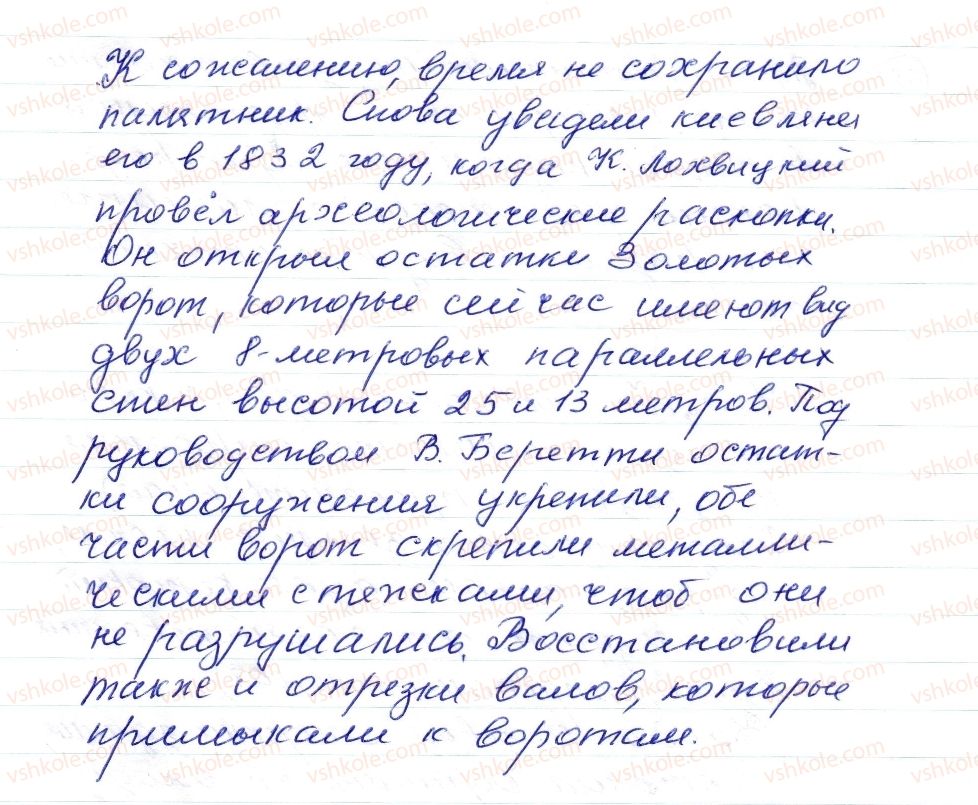 К сожалению, время не сохранило
памятник. Снова увидели киевляне
его в 1832 году, когда К. Лохвицкий
провёл археологические раскопки.
Он открыл остатки Золотых
ворот, которые сейчас имеют вид
двух 8-метровых параллельных
стен высотой 25 и 13 метров. Под
руководством В. Беретти остат-
ки сооружения укрепили, обе
части ворот скрепили металли-
ческими стяжками, чтоб они
не разрушались. Восстановили
также и отрезки валов, которые
примыкали к воротам.
vshkole.com